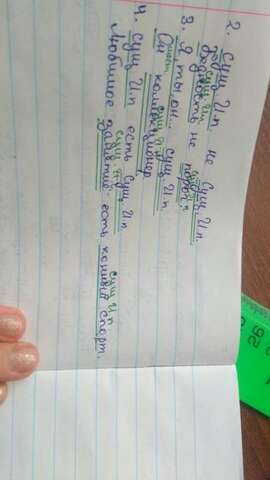 2. Сущ И.п. не сущ И.п.
сущ И.п.
Бедность не порок.
3. Я, ты, он... сущ И.п.
мест сущ И.п
Он коллекционер
4. Сущ И.п есть сущ И.п
сущ. И.п сущ И.п
Любимое занятие есть конный спорт.
26